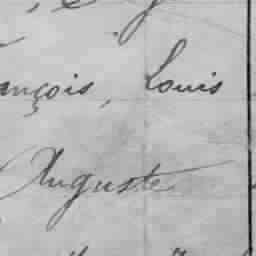 ançois, Louis
Auguste